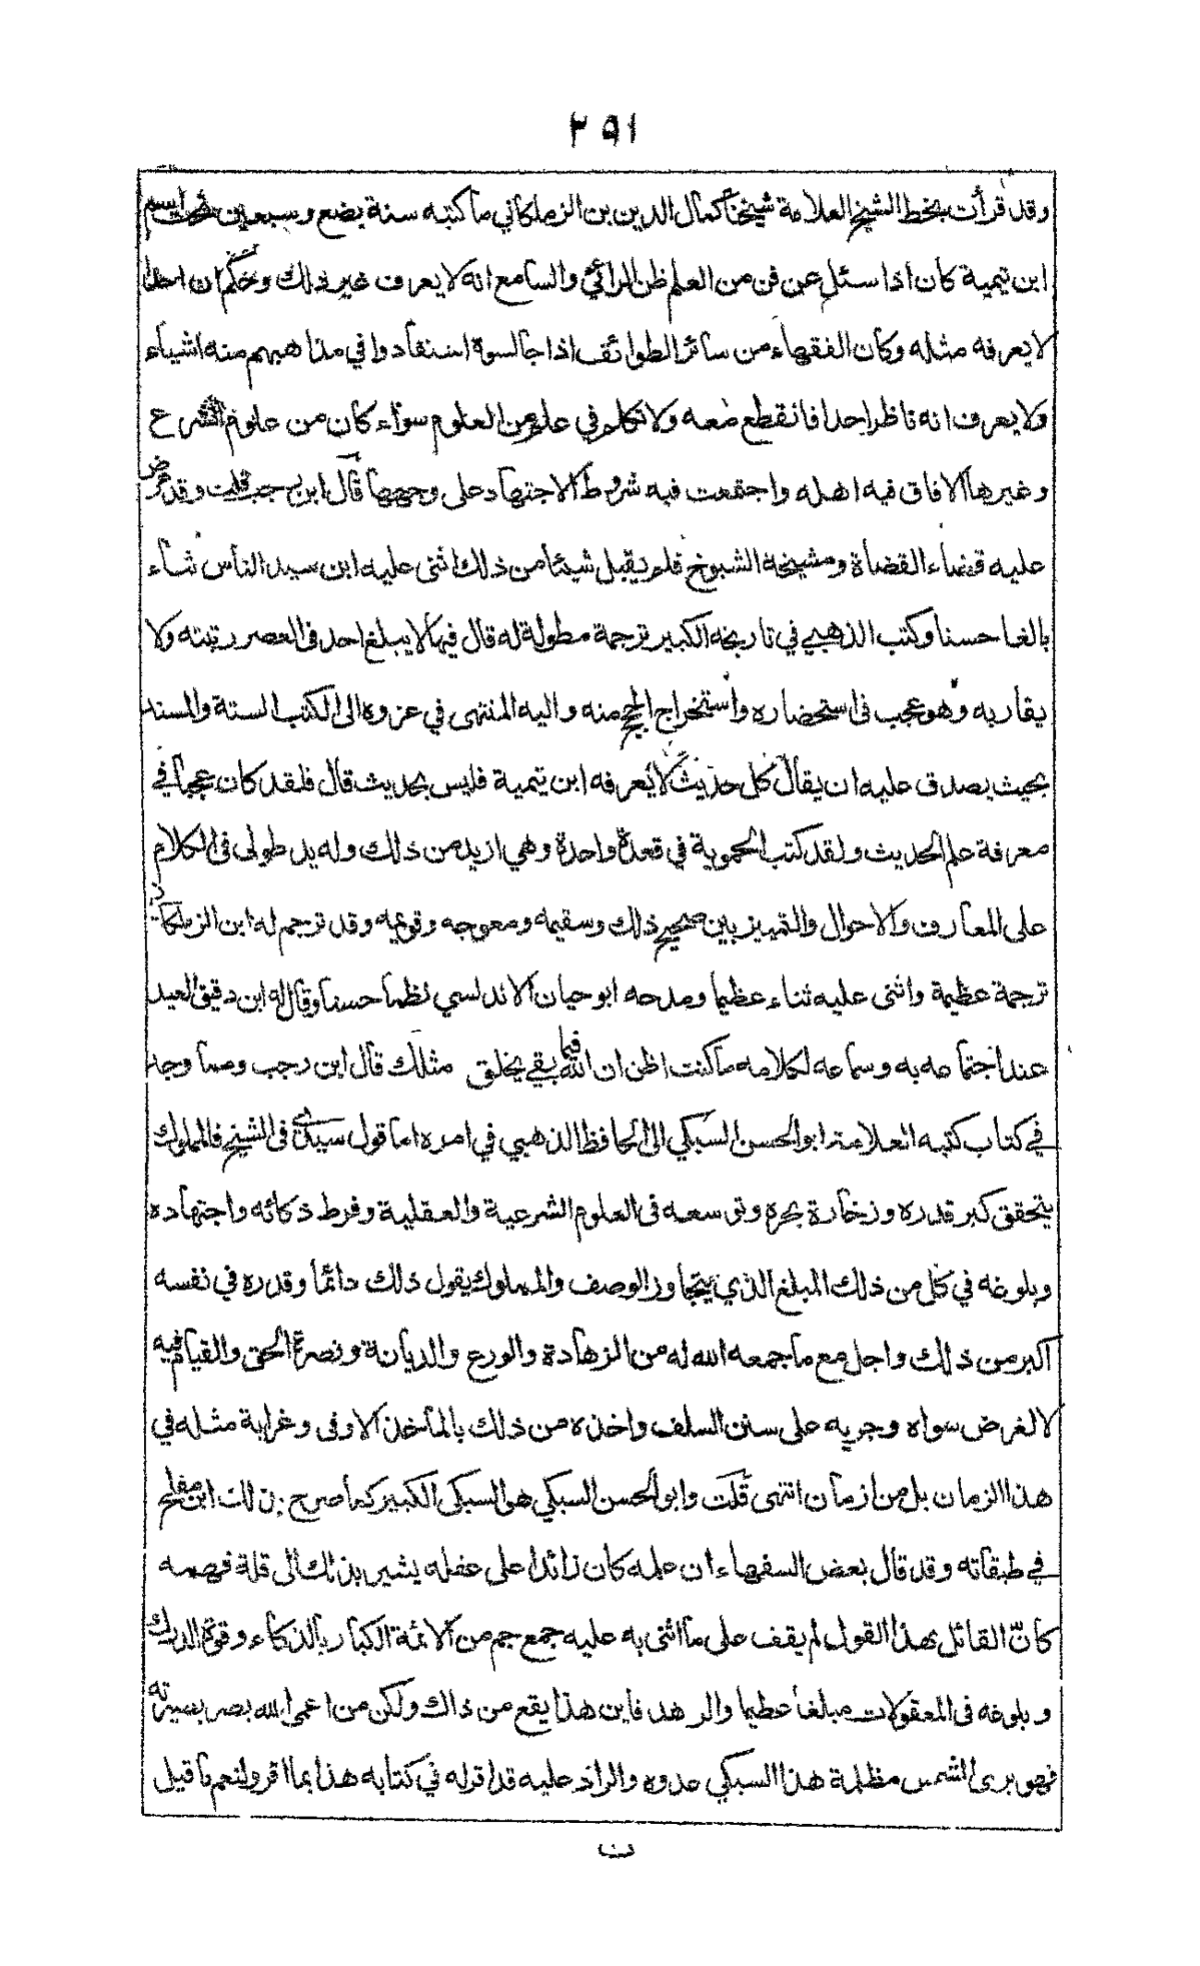 ٢٩١
وقد قرأت بخط الشيخ العلامة شيخنا كمال الدين بن الزملكاني ما كتبه سنة بضع وسبعين تحت اسم
ابن تيمية كان اذا سئل عن فن من العلم ظن الرائي والسامع انه لا يعرف غير ذلك وحكم ان احدا
لا يعرفه مثله وكان الفقهاء من سائر الطوائف اذا جالسوه استفادوا في مذاهبهم منه اشياء
ولا يعرف انه ناظر احدا فانقطع معه ولا تكلم في علم من العلوم سواء كان من علوم الشرع
وغيرها الا فاق فيه اهله واجتمعت فيه شروط الاجتهاد على وجهها قال ابن رجب قلت وقد عرض
عليه قضاء القضاة ومشيخة الشيوخ فلم يقبل شيئا من ذلك اثنى عليه ابن سيد الناس ثناء
بالغا حسنا وكتب الذهبي في تاريخه الكبير ترجمة مطولة له قال فيها لا يبلغ احد في العصر رتبته ولا
يقاربه وهو عجب في استحضاره واستخراج الحجج منه واليه المنتهى في عزوه الى الكتب الستة والمسند
بحيث يصدق عليه ان يقال كل حديث لا يعرفه ابن تيمية فليس بحديث قال فلقد كان عجبا في
معرفة علم الحديث ولقد كتب الحموية في قعدة واحدة وهي ازيد من ذلك وله يد طولى في الكلام
على المعارف والاحوال والتمييز بين صحيح ذلك وسقيمه ومعوجه وقويمه وقد ترجم له ابن الزملكاني
ترجمة عظيمة واثنى عليه ثناء عظيما ومدحه ابو حيان الاندلسي نظما حسنا وقال له ابن دقيق العيد
عند اجتماعه به وسماعه لكلامه ما كنت اظن ان الله فيما بقي يخلق مثلك قال ابن رجب ومما وجد
في كتاب كتبه العلامة ابو الحسن السبكي الى الحافظ الذهبي في امره اما قول سيدي في الشيخ فالمملوك
يتحقق كبر قدره وزخارة بحره وتوسعه في العلوم الشرعية والعقلية وفرط ذكائه واجتهاده
وبلوغه في كل من ذلك المبلغ الذي يتجاوز الوصف والمملوك يقول ذلك دائما وقدره في نفسه
اكبر من ذلك واجل مع ما جمعه الله له من الزهادة والورع والديانة ونصرة الحق والقيام فيه
لا لغرض سواه وجريه على سنن السلف واخذه من ذلك بالمأخذ الاوفى وغرابة مثله في
هذا الزمان بل من ازمان انتهى قلت وابو الحسن السبكي هو السبكي الكبير كما صرح بذلك ابن مفلح
في طبقاته وقد قال بعض السفهاء ان علمه كان زائدا على عقله يشير بذلك الى قلة فهمه
كانّ القائل بهذا القول لم يقف على ما اثنى به عليه جمع جم من الائمة الكبار بالذكاء وقوة الدرك
وبلوغه في المعقولات مبلغا عظيما والزهد فاين هذا يقع من ذاك ولكن من اعمى الله بصر بصيرته
فهو يرى الشمس مظلمة هذا السبكي عدوه والراد عليه قد اقر له في كتابه هذا بما اقر ولنعم ما قيل